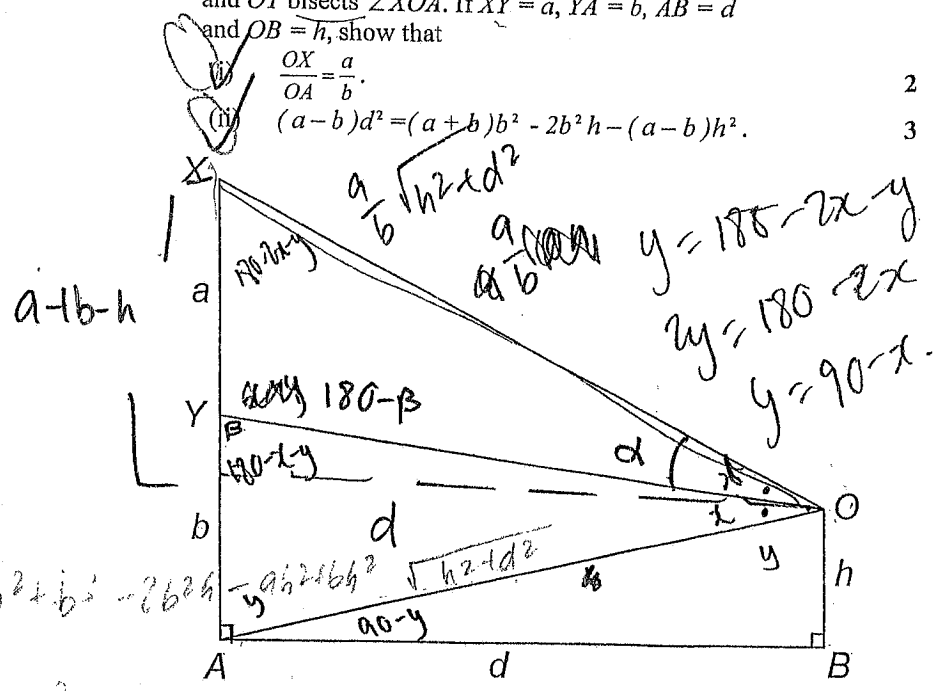 and OY bisects ∠XOA. If XY = a, YA = b, AB = d
and OB = h, show that
(i) OX/OA = a/b.
2
(ii) (a − b)d² = (a + b)b² - 2b²h − (a − b)h².
3
X
a/b √h²+d²
a/b
y = 180-2x-y
2y = 180-2x
y = 90-x.
180-2x-y
a+b-h
a
Y
180-β
β
α
x
180-x-y
x
O
b
d
y
h
-2b²h - ah²+bh²
√h²+d²
y
90-y
A
d
B